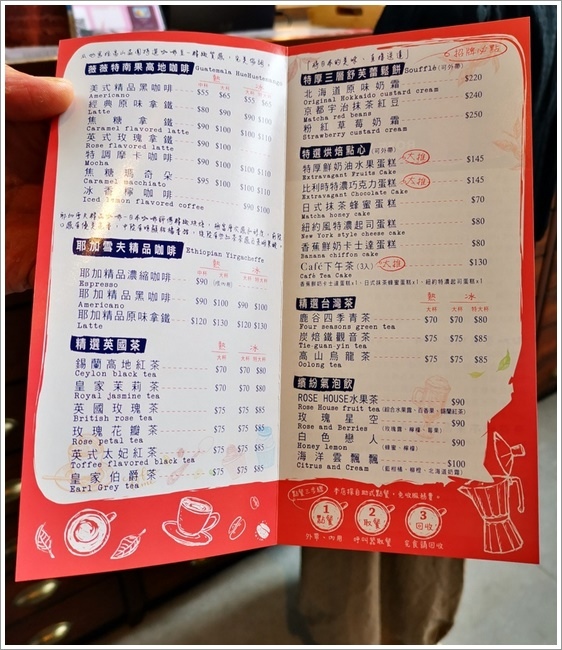 薇薇特南果高地咖啡 Guatemala HueHuetenango
熱 冰
中杯 大杯 大杯 特大杯
美式精品黑咖啡 $55 $65 $55 $65
Americano
經典原味拿鐵 $80 $90 $90 $100
Latte
焦糖拿鐵 $90 $100 $100 $110
Caramel flavored latte
英式玫瑰拿鐵 $90 $100
Rose flavored latte
特調摩卡咖啡 $95 $100
Mocha
焦糖瑪奇朵
Caramel macchiato
冰香檸咖啡 $90 $100
Iced lemon flavored coffee
耶加雪夫精品咖啡 Ethiopian Yirgacheffe
熱 冰
中杯 大杯 大杯 特大杯
耶加精品濃縮咖啡 $90
Espresso
耶加精品黑咖啡 $90 $100 $90 $100
Americano
耶加精品原味拿鐵 $120 $130 $120 $130
Latte
精選英國茶
熱 冰
大杯 大杯 特大杯
錫蘭高地紅茶 $70 $70 $80
Ceylon black tea
皇家茉莉茶 $70 $70 $80
Royal jasmine tea
英國玫瑰茶 $75 $75 $85
British rose tea
玫瑰花瓣茶 $75 $75 $85
Rose petal tea
英式太妃紅茶 $75 $75 $85
Toffee flavored black tea
皇家伯爵茶 $75 $75 $85
Earl Grey tea
招牌必點
特厚三層舒芙蕾鬆餅 Soufflé (可外帶)
北海道原味奶霜 $220
Original Hokkaido custard cream
京都宇治抹茶紅豆 $240
Matcha red beans
粉紅草莓奶霜 $250
Strawberry custard cream
特選烘焙點心 (可外帶)
特厚鮮奶油水果蛋糕 大推 $145
Extravagant Fruits Cake
比利時特濃巧克力蛋糕 大推 $145
Extravagant Chocolate Cake
日式抹茶蜂蜜蛋糕 $70
Matcha honey cake
紐約風特濃起司蛋糕 $80
New York style cheese cake
香蕉鮮奶卡士達蛋糕 $70
Banana chiffon cake
Café下午茶(3人) 大推 $130
Café Tea Cake
香蕉鮮奶卡士達蛋糕x1、日式抹茶蜂蜜蛋糕x1、紐約特濃起司蛋糕x1
精選台灣茶
熱 冰
大杯 大杯 特大杯
鹿谷四季青茶 $70 $70 $80
Four seasons green tea
炭焙鐵觀音茶 $75 $75 $85
Tie guan-yin tea
高山烏龍茶 $75 $75 $85
Oolong tea
繽紛氣泡飲
ROSE HOUSE水果茶 $90
Rose House fruit tea (綜合水果露、百香果、錫蘭紅茶)
玫瑰星空 $90
Rose and Berries (玫瑰露、檸檬、莓果)
白色戀人 $90
Honey lemon (蜂蜜、檸檬)
海洋雲飄飄 $100
Citrus and Cream (藍柑橘、柳橙、北海道奶霜)
點餐三步驟 本店採自助式點餐，免收服務費。
1 點餐
2 取餐
3 回收
外帶、內用 呼叫器取餐 完食請回收